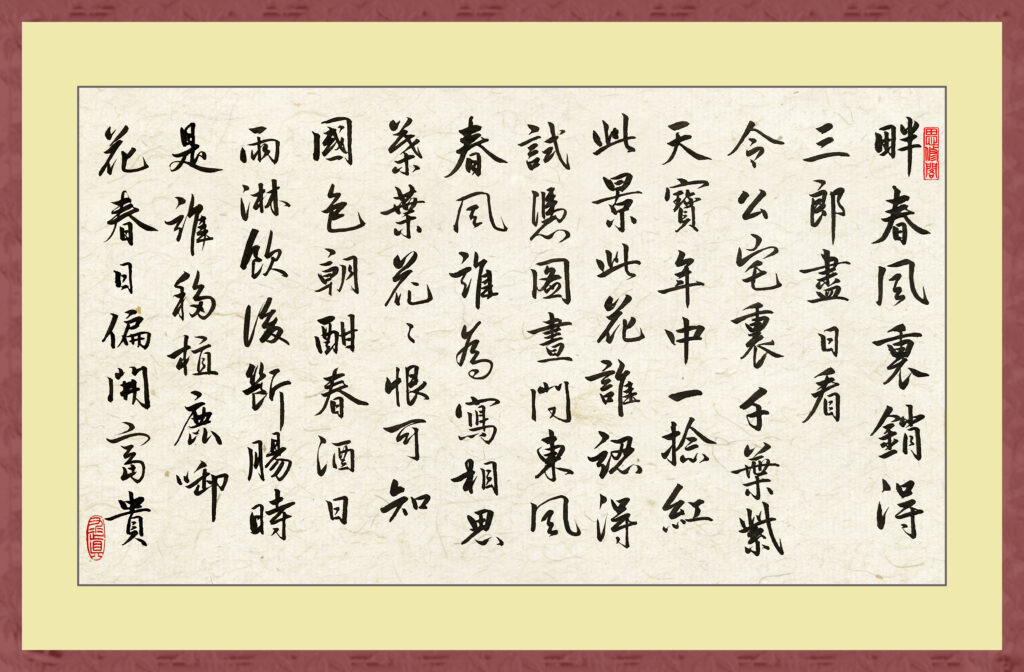 畔春風裏銷得
三郎盡日看
令公宅裏千葉紫
天寶年中一捻紅
此景此花誰認得
試憑圖畫問東風
春風誰為寫相思
葉葉花〻恨可知
國色朝酣春酒日
雨淋飲後斷腸時
是誰移植鹿啣
花春日偏開富貴